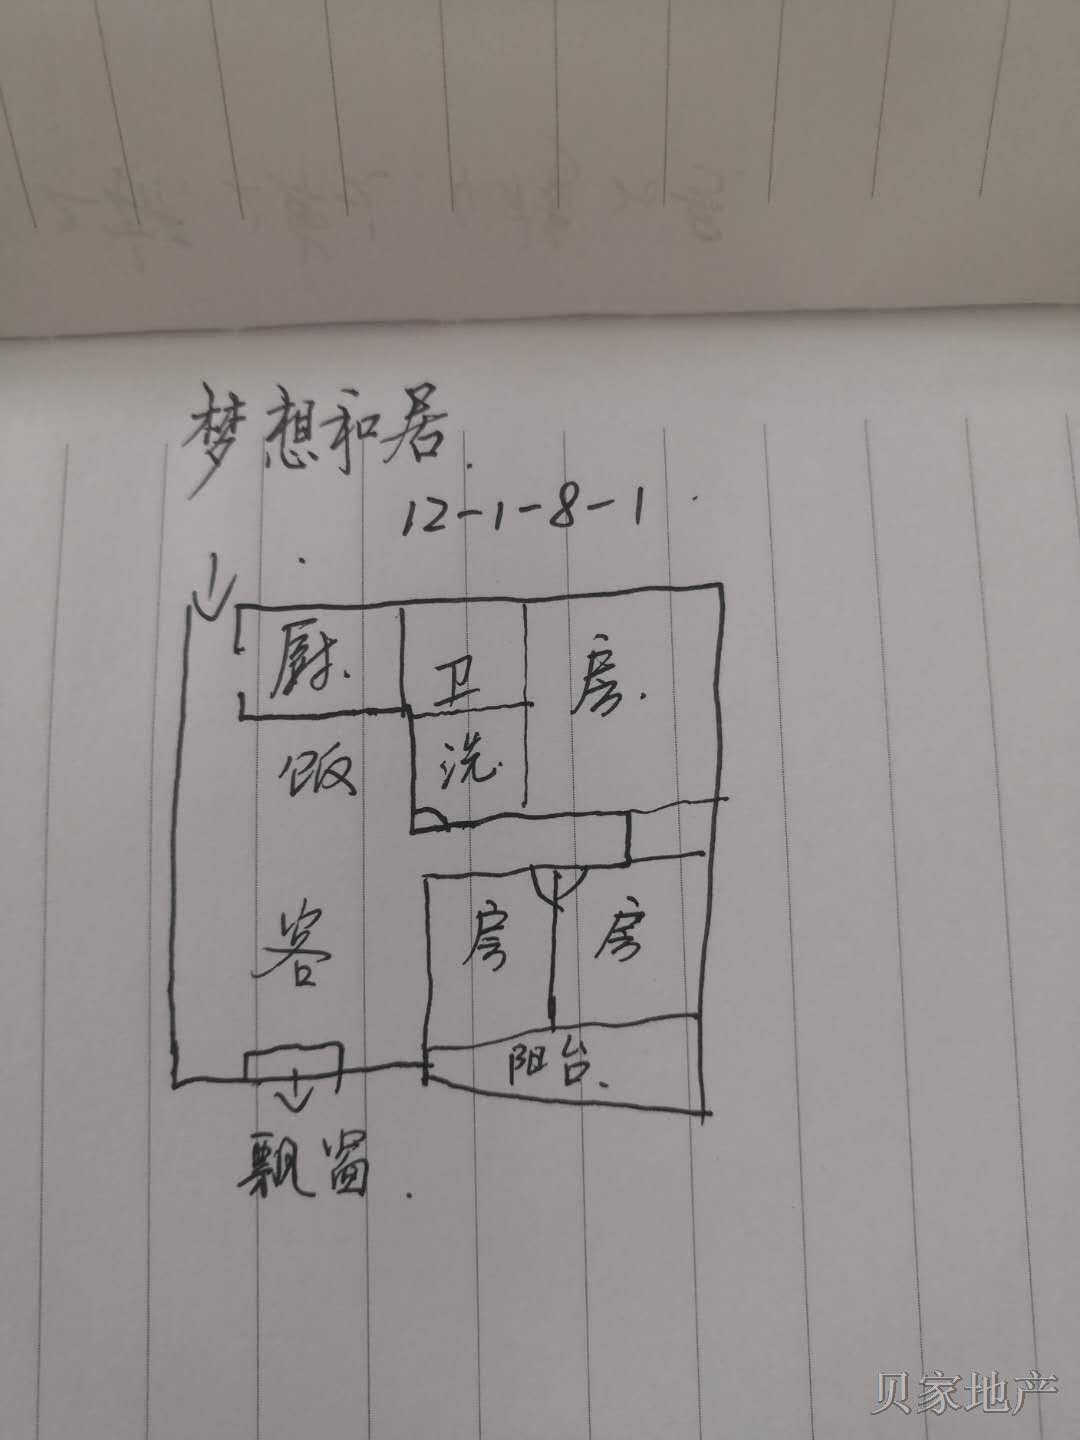 梦想和居.
12-1-8-1
厨.
卫
房.
饭
洗.
客
房
房
阳台.
飘窗.
贝家地产